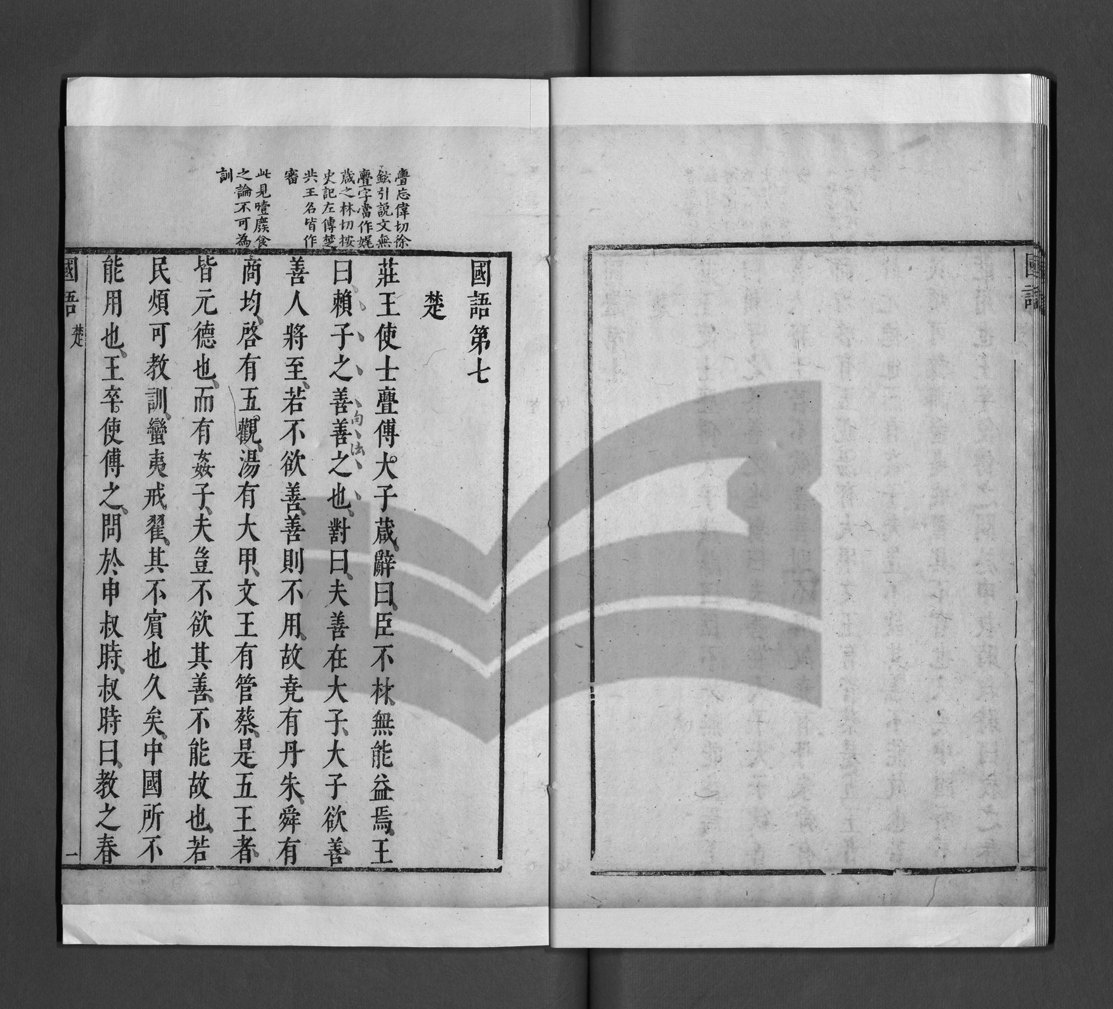 亹忘偉切徐
鉉引說文無
亹字當作娓
葴之林切按
史記左傳楚
共王名皆作
審
此見噎廢食
之論不可為
訓
國語第七
楚
莊王使士亹傅大子葴辭曰臣不材無能益焉王
曰賴子之善善之也對曰夫善在大子大子欲善
句法
善人將至若不欲善善則不用故堯有丹朱舜有
商均啓有五觀湯有大甲文王有管蔡是五王者
皆元德也而有姦子夫豈不欲其善不能故也若
民煩可教訓蠻夷戎翟其不賓也久矣中國所不
能用也王卒使傅之問於申叔時叔時曰教之春
國語
楚
一